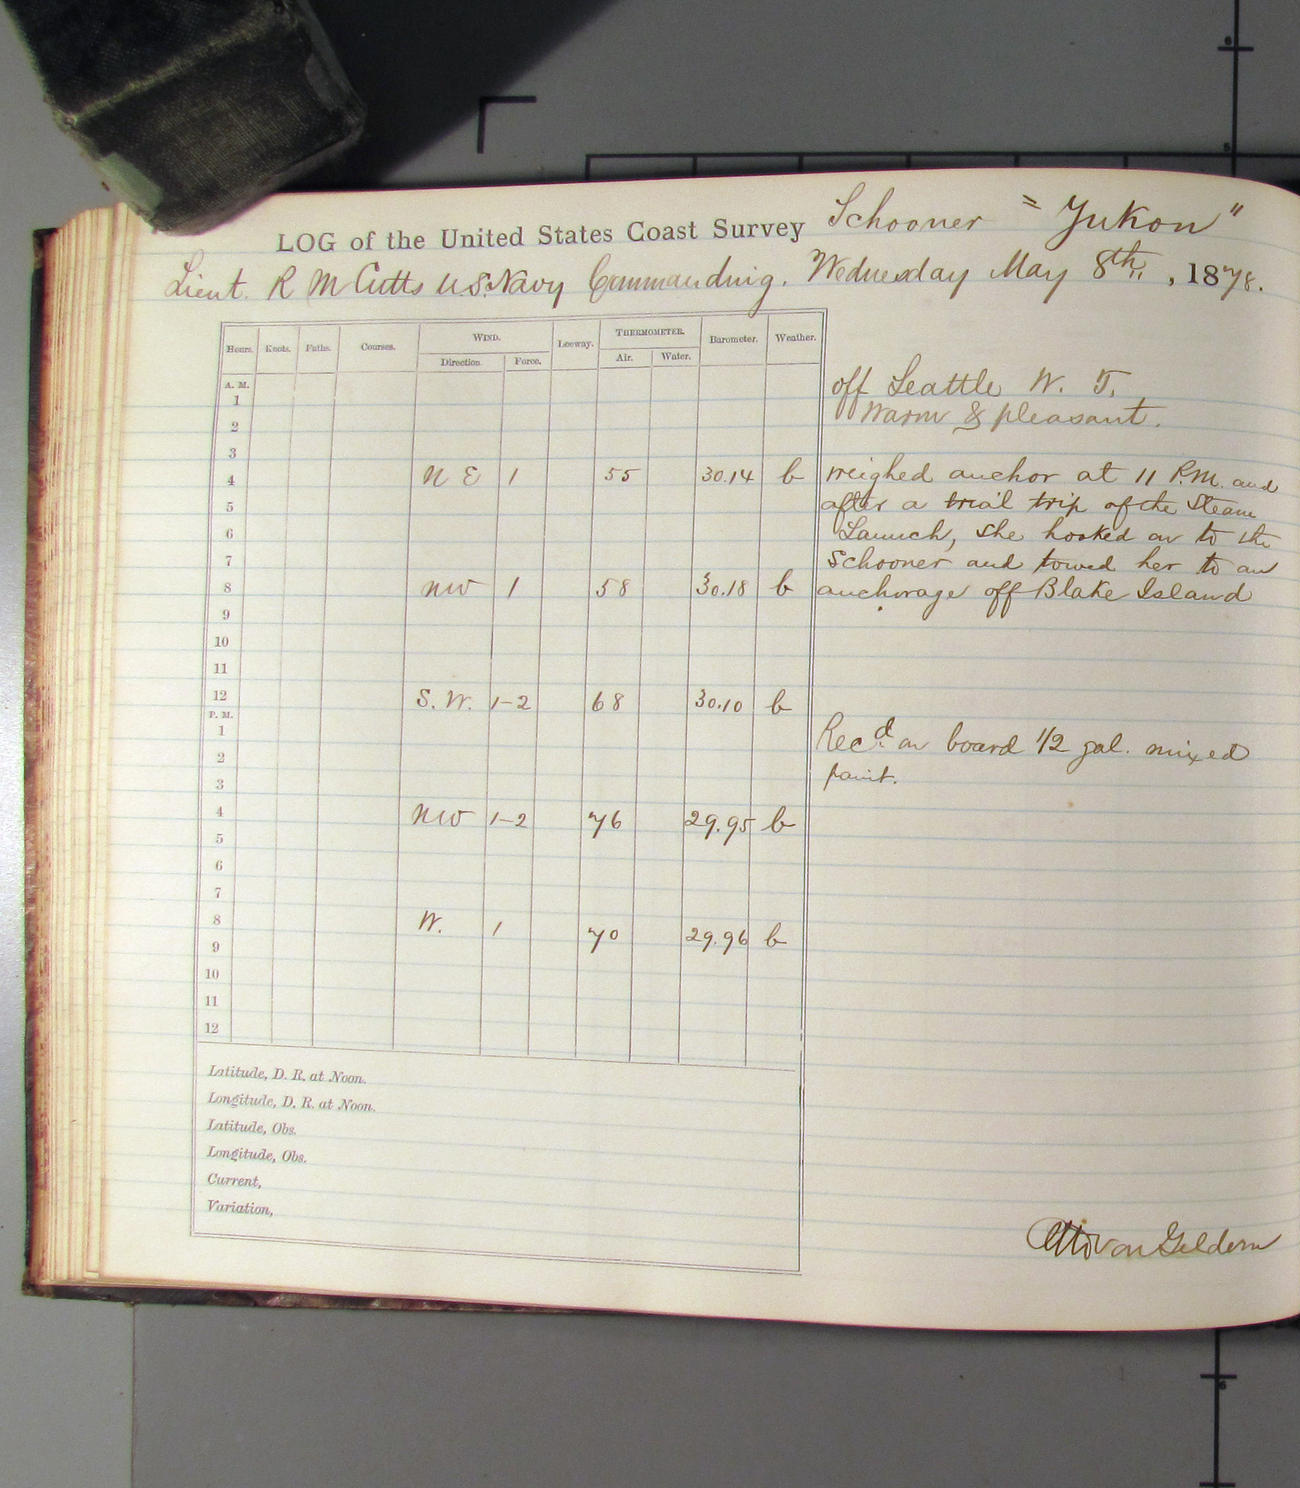 LOG of the United States Coast Survey Schooner "Yukon"
Lieut. R M Cutts U.S. Navy Commanding. Wednesday May 8th, 1878.
Hours. Knots. Faths. Courses. WIND. Leeway. THERMOMETER. Barometer. Weather.
Direction. Force. Air. Water.
A. M.
off Seattle W. T.
1
Warm & pleasant.
2
3
4 N E 1 55 30.14 b weighed anchor at 11 P.M. and
5 after a trial trip of the Steam
6 Launch, she hooked on to the
7 schooner and towed her to an
8 NW 1 58 30.18 b anchorage off Blake Island
9
10
11
12 S. W. 1-2 68 30.10 b
P. M.
1 Recd. on board 1/2 gal. mixed
2 paint.
3
4 NW 1-2 76 29.95 b
5
6
7
8 W. 1 70 29.96 b
9
10
11
12
Latitude, D. R. at Noon.
Longitude, D. R. at Noon.
Latitude, Obs.
Longitude, Obs.
Current,
Variation,
Otto von Geldern
6
5
6